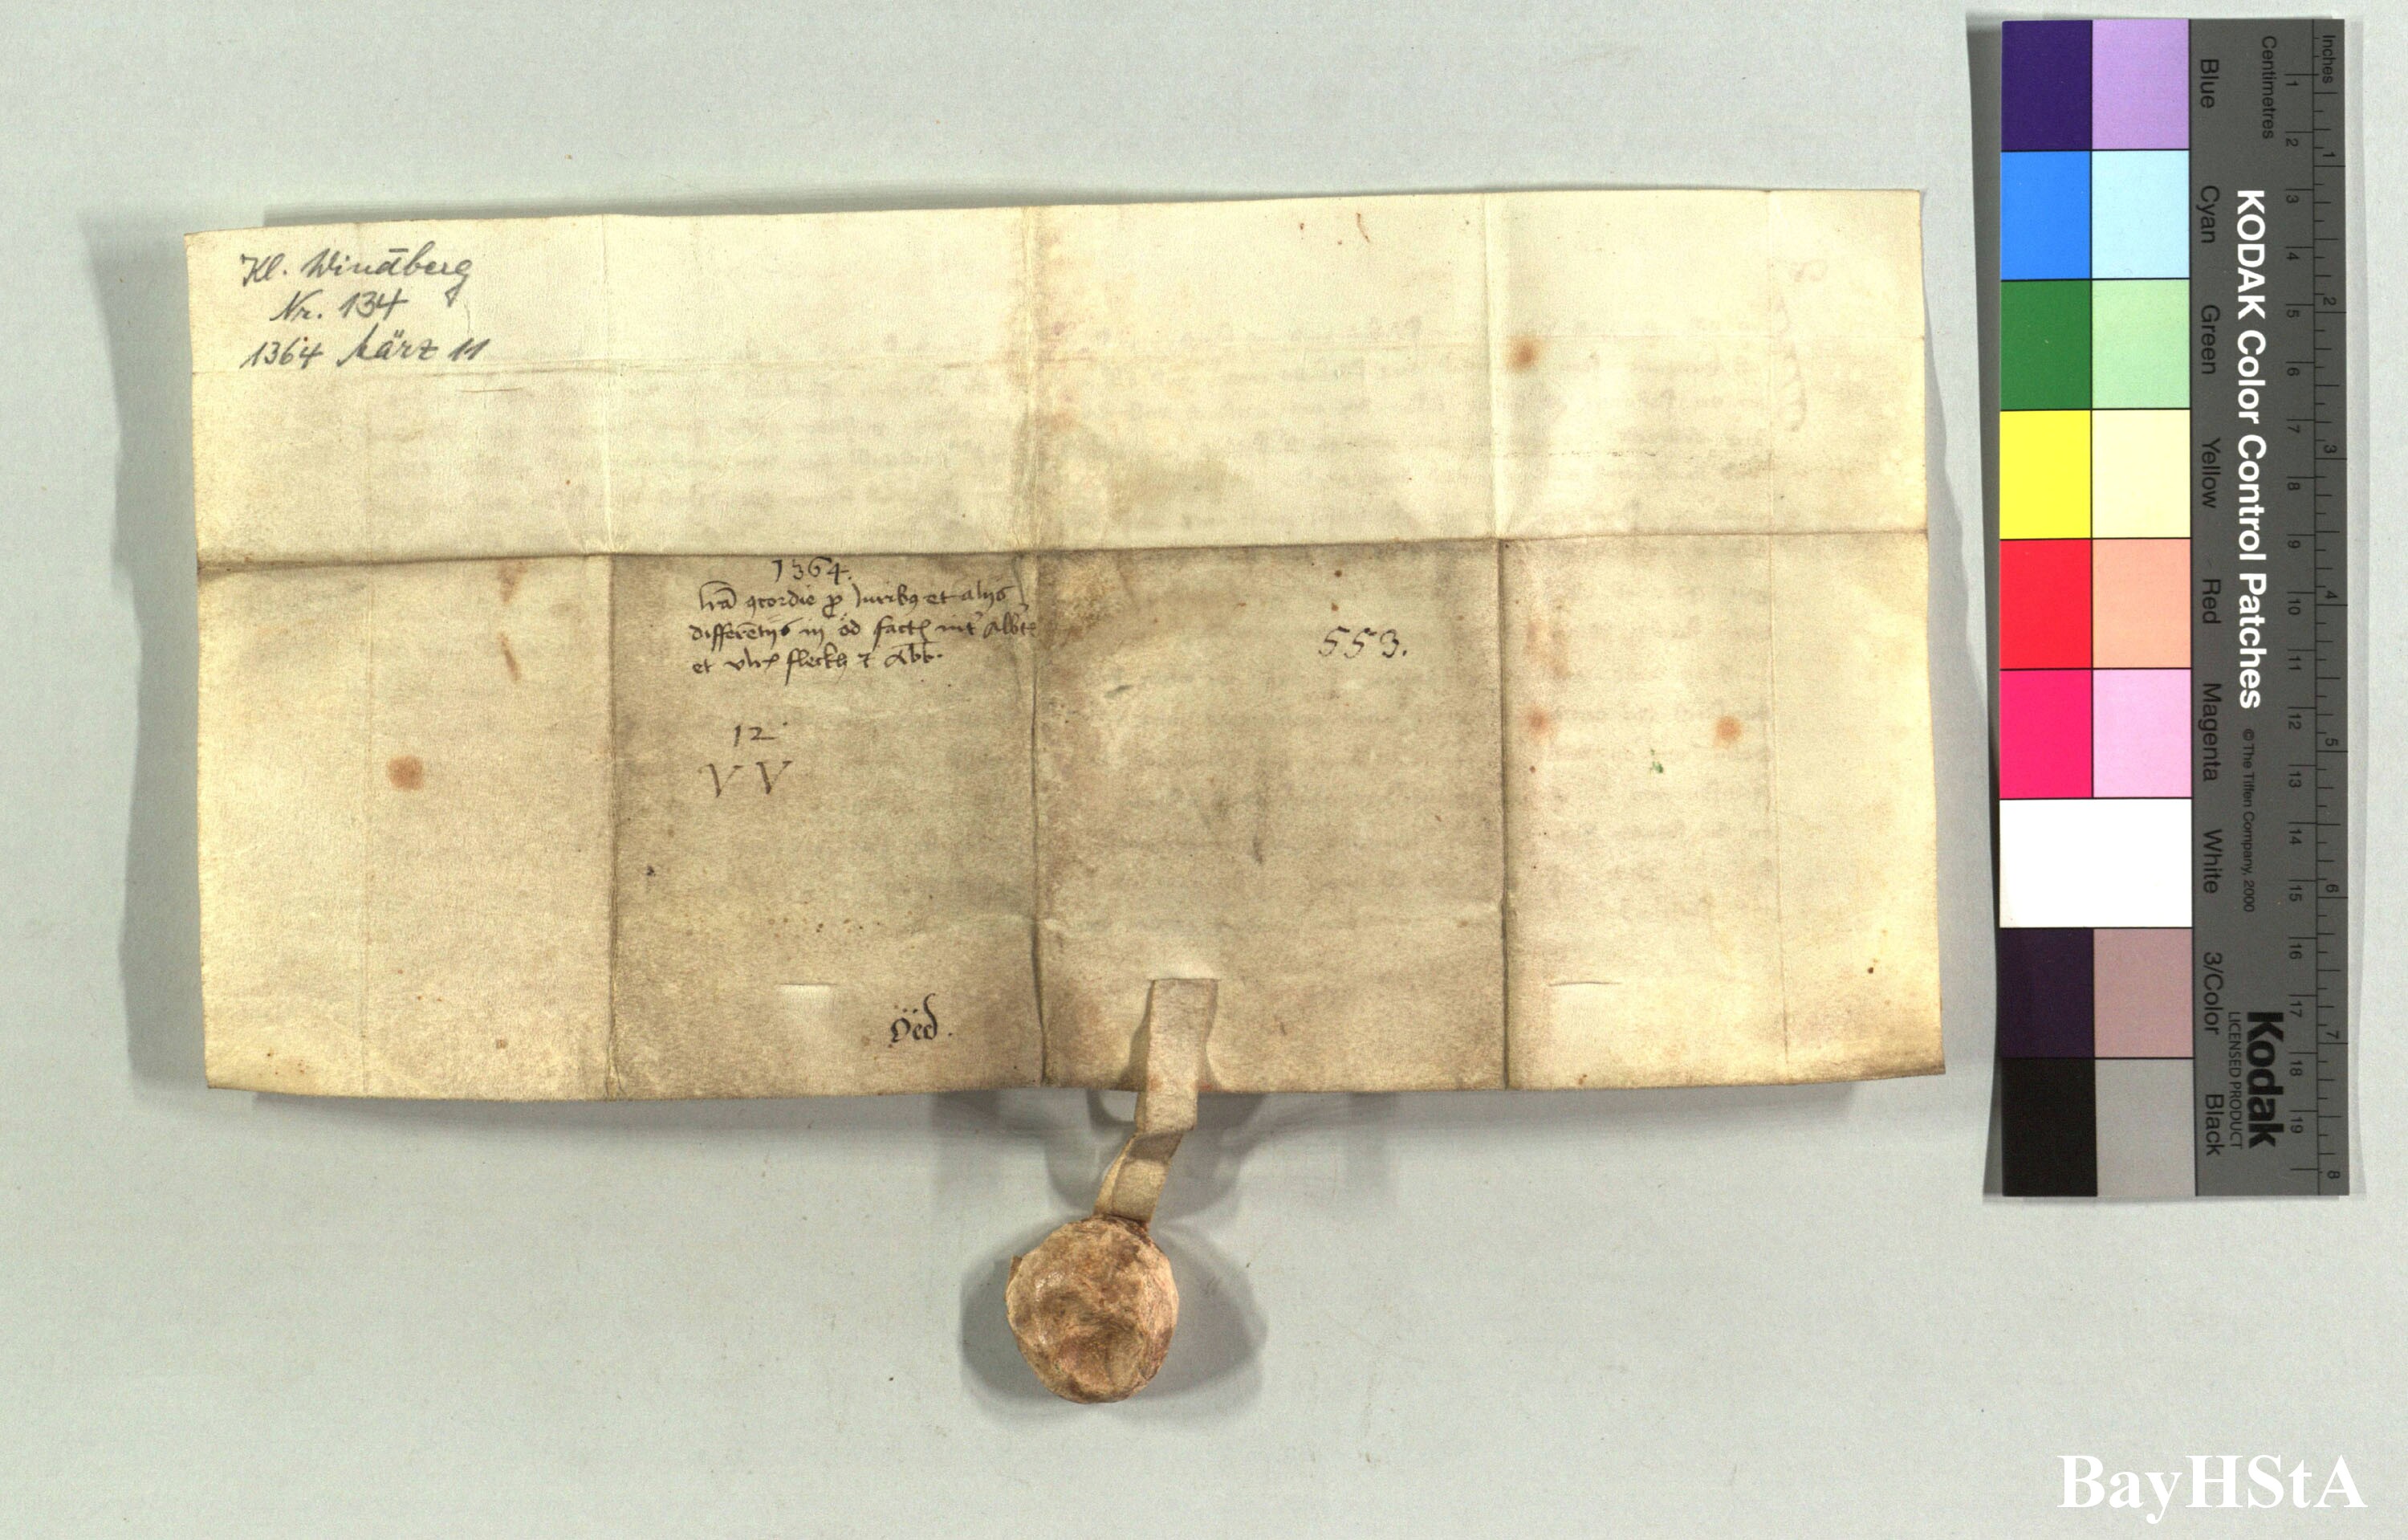 Kl. Windberg
Nr. 134
1364 März 11
1364.
lr̄a ꝯcordie ꝓ Iuribꝯ et alijs
differētijs in öd factꝭ int̾
et fleckh ⁊ Abb.
553.
12
VV
Öed.
Blue Cyan Green Yellow Red Magenta White 3/Color Black
KODAK Color Control Patches
© The Tiffen Company, 2000
Kodak
LICENSED PRODUCT
Centimetres
1 2 3 4 5 6 7 8 9 10 11 12 13 14 15 16 17 18 19
Inches
1 2 3 4 5 6 7 8
BayHStA